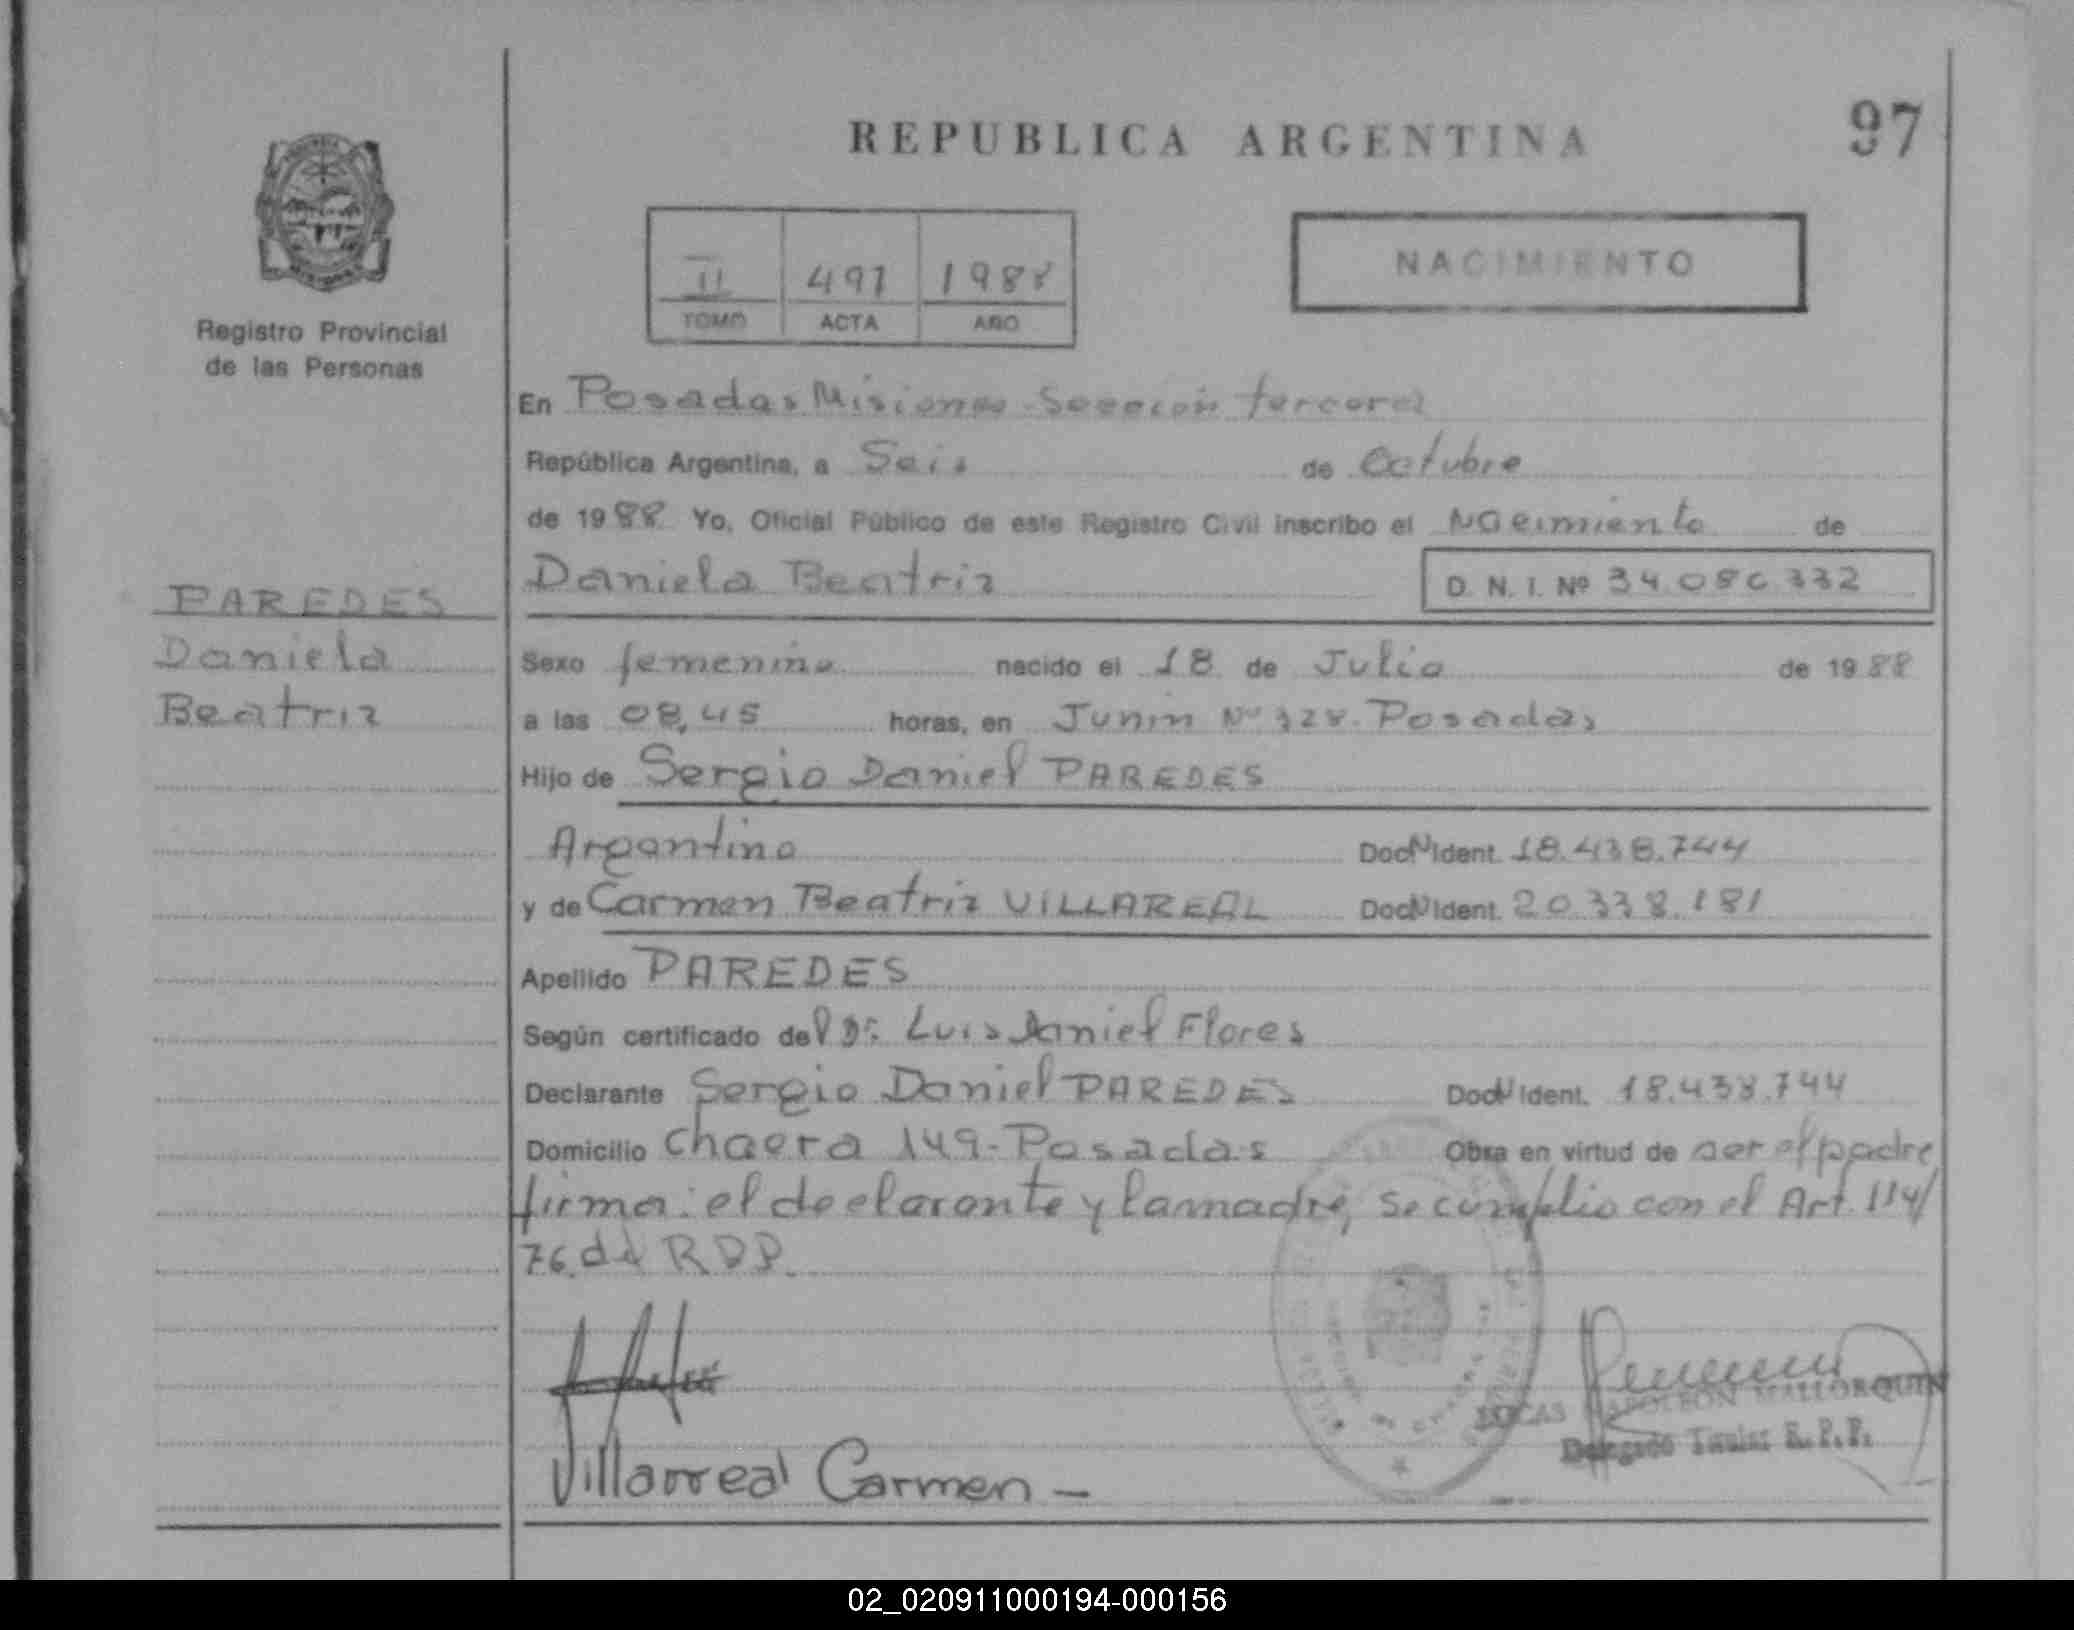 REPUBLICA ARGENTINA
97
Registro Provincial
de las Personas
II 491 1988
TOMO ACTA AÑO
NACIMIENTO
En Posadas Misiones Sección tercera
República Argentina, a Seis de Octubre
de 1988 Yo, Oficial Público de este Registro Civil inscribo el Nacimiento de
Daniela Beatriz D. N. I. Nº 34.086.332
PAREDES
Daniela
Beatriz
Sexo femenino nacido el 18 de Julio de 1988
a las 08,45 horas, en Junín Nº 328. Posadas
Hijo de Sergio Daniel PAREDES
Argentino Doc N Ident. 18.438.744
y de Carmen Beatriz VILLAREAL Doc N Ident. 20.338.181
Apellido PAREDES
Según certificado del Dr. Luis Daniel Flores
Declarante Sergio Daniel PAREDES Doc N Ident. 18.438.744
Domicilio Chacra 149-Posadas Obra en virtud de ser el padre
firma: el declarante y la madre, se cumplio con el Art. 114/
76. del RDP.
Villarreal Carmen -
LUCAS NAPOLEON MALLORQUIN
Delegado Titular R. P. P.
02_020911000194-000156